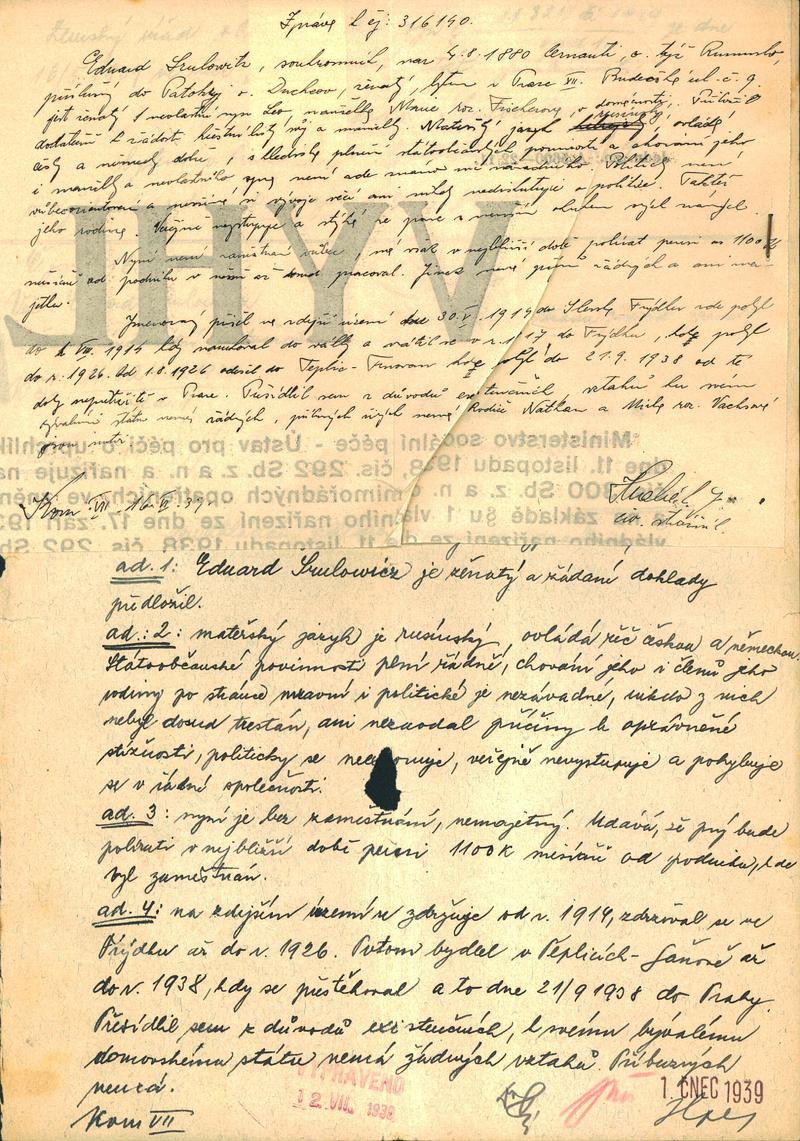 Zpráva k čj: 316140.
Eduard Srulowitz, soukromník, nar. 4.8.1880 Černauti, o. týž Rumunsko,
příslušný do Patokry o. Duchcov, ženatý, bytem v Praze VII. Budečská ul. č. 9
jest ženatý 1 nevlastní syn Leo, manželka Marie roz. Fischerová, v domácnosti. Připojil
dodatečně k žádosti křestní listy svůj a manželky. Mateřský jazyk rusínský, ovládá
česky a německy dobře, s hlediska plnění státoobčanských povinností a chování jeho
i manželky a nevlastního syna není zde známo nic závadného. Politicky není
vůbec organisován a nesnaží se vývoje věcí ani nikdy nediskutuje o politice. Taktéž
jeho rodina. Veřejně nevystupuje a stýká se pouze s menším okruhem svých známých.
Nyní není zaměstnán vůbec, má však v nejbližší době pobírat pensi as 1100 K
měsíčně od podniku v němž až dosud pracoval. Jinak nemá příjmů žádných a ani ma-
jetku.
Jmenovaný přišel na zdejší území dne 30.V.1914 do Slezska Frýdku kde pobyl
do VIII. 1915 kdy narukoval do války a vrátil se v r. 1917 do Frýdku, kde pobyl
do r. 1926. Od 1.8.1926 odešel do Teplic-Trnovan kde pobyl do 21.9.1938 od té
doby nepřetržitě v Praze. Přesídlil sem z důvodů existenčních, vztahů ku svému
bývalému státu nemá žádných, příbuzných svých nemá. Rodiče Nathan a Michle roz. Vachsová
jsou mrtvi.
Kom VII - 16.VI.39.
str. strážm.
VYHL
Ministerstvo sociální péče - Ústav pro péči o uprchlík
dne 11. listopadu 1938, čís. 292 Sb. z. a n. a nařizuje na
čís. 300 Sb. z. a n. o mimořádných opatřeních, ve znění
na základě §u 1 vládního nařízení ze dne 17. září 193
vládního nařízení ze dne 11. listopadu 1938, čís. 292 Sb
ad. 1: Eduard Srulowicz je ženatý a žádané doklady
předložil.
ad.: 2: mateřský jazyk je rusínský, ovládá řeč českou a německou.
Státoobčanské povinnosti plní řádně, chování jeho i členů jeho
rodiny po stránce mravní i politické je nezávadné, nikdo z nich
nebyl dosud trestán, ani nezavdal příčiny k oprávněné
stížnosti, politicky se neexponuje, veřejně nevystupuje a pohybuje
se v řádné společnosti.
ad. 3: nyní je bez zaměstnání, nemajetný. Udává, že prý bude
pobírati v nejbližší době pensi 1100 K měsíčně od podniku, kde
byl zaměstnán.
ad. 4: na zdejším území se zdržuje od r. 1914, zdržoval se ve
Frýdku až do r. 1926. Potom bydlel v Teplicích-Šanově až
do r. 1938, kdy se přestěhoval a to dne 21/9 1938 do Prahy.
Přesídlil sem z důvodů existenčních, k svému bývalému
domovskému státu nemá žádných vztahů. Příbuzných
nemá.
Kom VII
VYPRAVENO
12. VII. 1939
1. ČNEC 1939